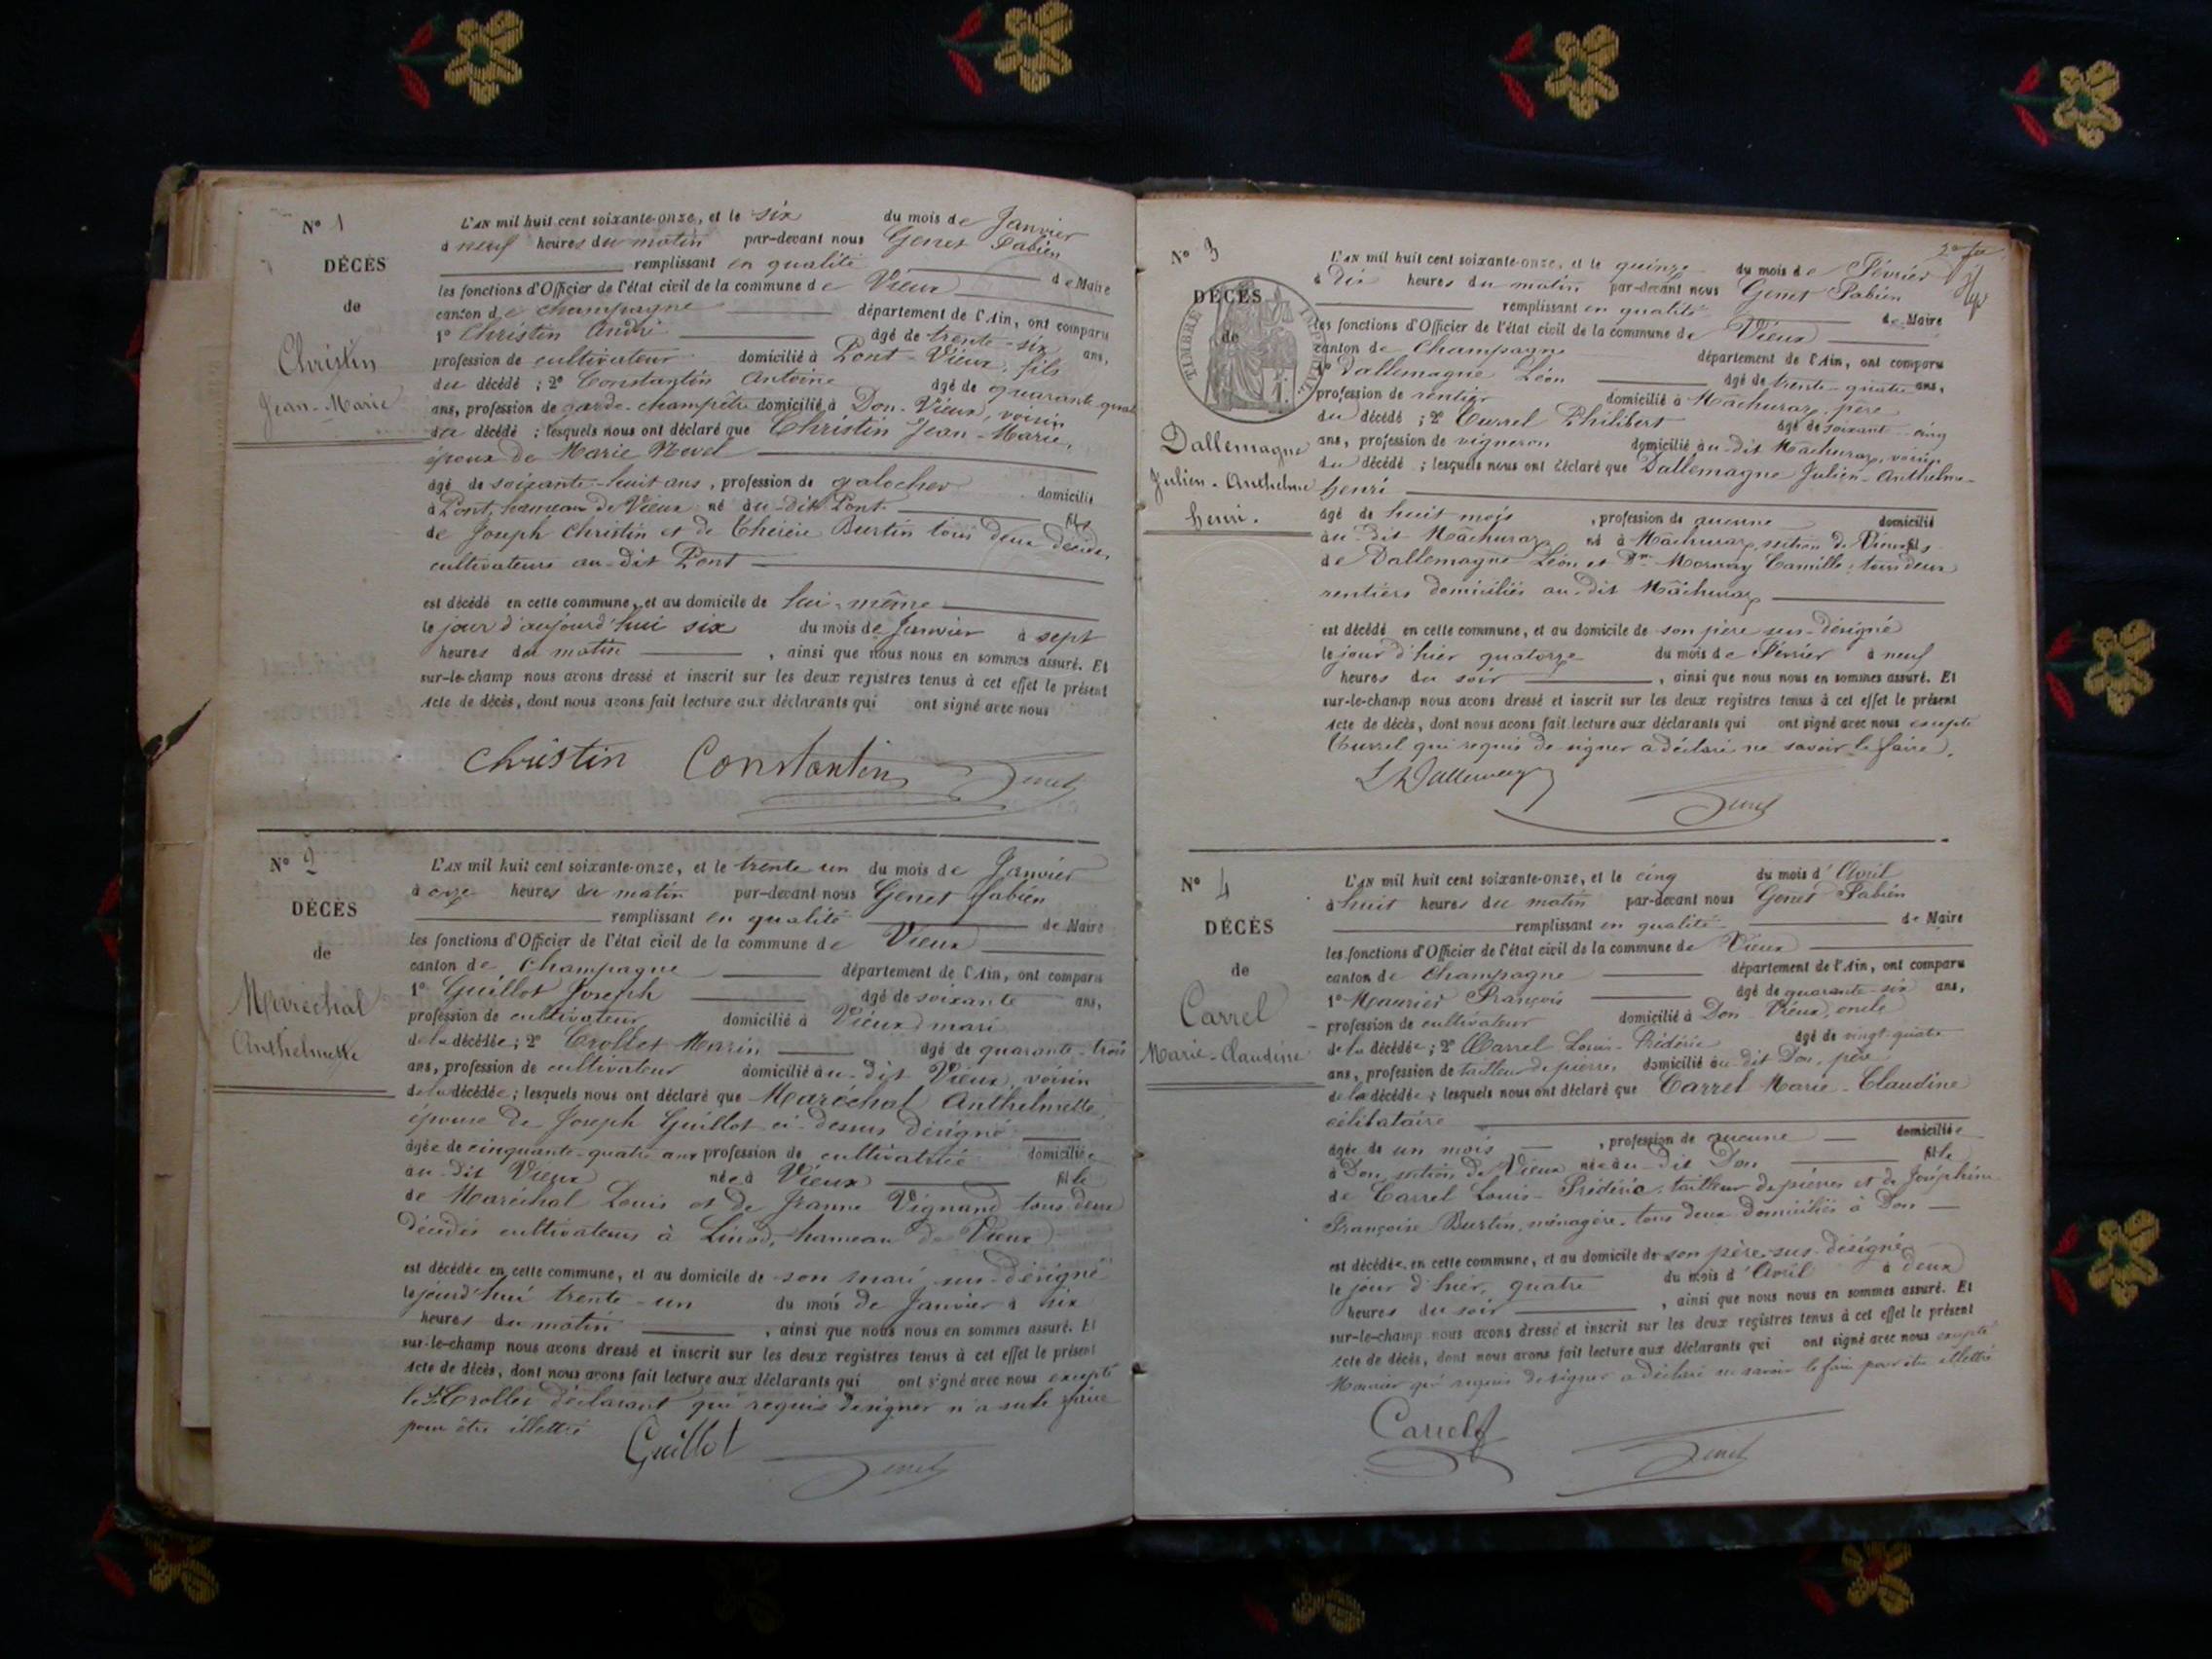 N° 1
DÉCÈS
de
Christin
Jean-Marie
L'AN mil huit cent soixante-onze, et le six du mois de Janvier
à neuf heures du matin par-devant nous Genet Fabien
remplissant en qualité de Maire
les fonctions d'Officier de l'état civil de la commune de Vieux
canton de Champagne département de l'Ain, ont comparu
1° Christin André âgé de trente-six ans,
profession de cultivateur domicilié à Pont-Vieux, fils
du décédé ; 2° Constantin Antoine âgé de quarante quatre
ans, profession de garde-champêtre domicilié à Don-Vieux, voisin
du décédé ; lesquels nous ont déclaré que Christin Jean-Marie,
époux de Marie
âgé de soixante-huit ans, profession de galocher domicilié
à Pont, hameau de Vieux né au-dit Pont fils
de Joseph Christin et de Thérèse Burtin tous deux décédés
cultivateurs au-dit Pont
est décédé en cette commune, et au domicile de lui-même
le jour d'aujourd'hui six du mois de Janvier à sept
heures du matin , ainsi que nous nous en sommes assuré. Et
sur-le-champ nous avons dressé et inscrit sur les deux registres tenus à cet effet le présent
Acte de décès, dont nous avons fait lecture aux déclarants qui ont signé avec nous
Christin Constantin Genet
N° 2
DÉCÈS
de
Maréchal
Anthelmette
L'AN mil huit cent soixante-onze, et le trente un du mois de Janvier
à onze heures du matin par-devant nous Genet Fabien
remplissant en qualité de Maire
les fonctions d'Officier de l'état civil de la commune de Vieux
canton de Champagne département de l'Ain, ont comparu
1° Guillot Joseph âgé de soixante ans,
profession de cultivateur domicilié à Vieux mari
de la décédée ; 2° Crollet Marin âgé de quarante-trois
ans, profession de cultivateur domicilié au-dit Vieux, voisin
de la décédée ; lesquels nous ont déclaré que Maréchal Anthelmette,
épouse de Joseph Guillot ci-dessus désigné
âgée de cinquante-quatre ans profession de cultivatrice domiciliée
au-dit Vieux née à Vieux fille
de Maréchal Louis et de Jeanne Vignand tous deux
décédés cultivateurs à Linod, hameau de Vieux
est décédée en cette commune, et au domicile de son mari sus-désigné
le jourd'hui trente-un du mois de Janvier à six
heures du matin , ainsi que nous nous en sommes assuré. Et
sur-le-champ nous avons dressé et inscrit sur les deux registres tenus à cet effet le présent
Acte de décès, dont nous avons fait lecture aux déclarants qui ont signé avec nous excepté
le Sr Crollet déclarant qui requis de signer n'a su le faire
pour être illettré
Guillot Genet
2e fet
N° 3
DÉCÈS
de
TIMBRE IMPÉRIAL
Dallemagne
Julien-Anthelme
henri.
L'AN mil huit cent soixante-onze, et le quinze du mois de Février
à dix heures du matin par-devant nous Genet Fabien
remplissant en qualité de Maire
les fonctions d'Officier de l'état civil de la commune de Vieux
canton de Champagne département de l'Ain, ont comparu
1° Dallemagne Léon âgé de trente-quatre ans,
profession de rentier domicilié à Mâchuraz, père
du décédé ; 2° Philibert âgé de soixante-cinq
ans, profession de vigneron domicilié au-dit Mâchuraz, voisin
du décédé ; lesquels nous ont déclaré que Dallemagne Julien-Anthelme-
henri
âgé de huit mois , profession de aucune domicilié
au-dit Mâchuraz né à Mâchuraz, section de Vieux fils
de Dallemagne Léon et Dme Mornay Camille, tous deux
rentiers domiciliés au-dit Mâchuraz
est décédé en cette commune, et au domicile de son père sus-désigné
le jour d'hier quatorze du mois de Février à neuf
heures du soir , ainsi que nous nous en sommes assuré. Et
sur-le-champ nous avons dressé et inscrit sur les deux registres tenus à cet effet le présent
Acte de décès, dont nous avons fait lecture aux déclarants qui ont signé avec nous excepté
qui requis de signer a déclaré ne savoir le faire.
L Dallemagne Genet
N° 4
DÉCÈS
de
Carrel
Marie-Claudine
L'AN mil huit cent soixante-onze, et le cinq du mois d'Avril
à huit heures du matin par-devant nous Genet Fabien
remplissant en qualité de Maire
les fonctions d'Officier de l'état civil de la commune de Vieux
canton de Champagne département de l'Ain, ont comparu
1° Maurier François âgé de quarante-six ans,
profession de cultivateur domicilié à Don-Vieux, oncle
de la décédée ; 2° Carrel Louis-Frédéric âgé de vingt-quatre
ans, profession de tailleur de pierres domicilié au-dit Don, père
de la décédée ; lesquels nous ont déclaré que Carrel Marie-Claudine
célibataire
âgée de un mois , profession de aucune domiciliée
à Don, section de Vieux née au-dit Don fille
de Carrel Louis-Frédéric, tailleur de pierres et de Joséphine
Françoise Burtin, ménagère, tous deux domiciliés à Don
est décédée en cette commune, et au domicile de son père sus-désigné
le jour d'hier, quatre du mois d'Avril à deux
heures du soir , ainsi que nous nous en sommes assuré. Et
sur-le-champ nous avons dressé et inscrit sur les deux registres tenus à cet effet le présent
Acte de décès, dont nous avons fait lecture aux déclarants qui ont signé avec nous excepté
Maurier qui requis de signer a déclaré ne savoir le faire pour être illettré
Carrel Genet